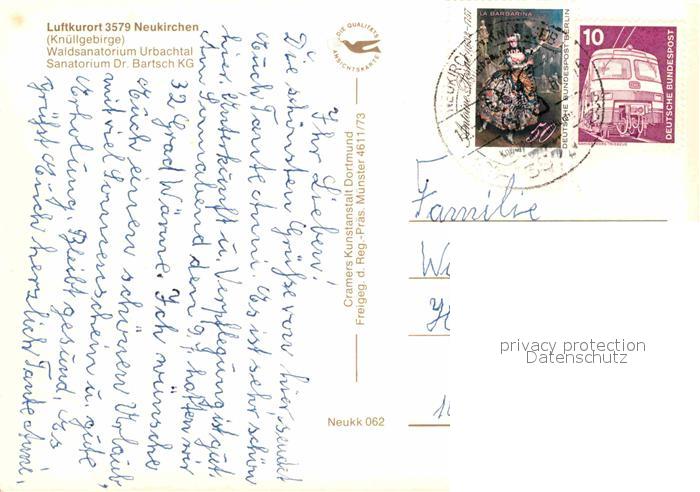 Luftkurort 3579 Neukirchen
(Knüllgebirge)
Waldsanatorium Urbachtal
Sanatorium Dr. Bartsch KG
DIE QUALITÄTS
ANSICHTSKARTE
Ihr Lieben!
Die schönsten Grüße von hier, sendet
Euch Tante Anni. Es ist sehr schön
hier, Unterkunft u. Verpflegung ist gut.
Am Sonnabend den 9., hatten wir
32 Grad Wärme. Ich wünsche
Euch einen schönen Urlaub,
mit viel Sonnenschein u. gute
Erholung. Bleibt gesund. Es
grüßt Euch herzlich Tante Anni.
Cramers Kunstanstalt Dortmund
Freigeg. d. Reg.-Präs. Münster 4611/73
Neukk 062
LA BARBARINA
DEUTSCHE BUNDESPOST BERLIN
50
10
DEUTSCHE BUNDESPOST
NEUKIRCH
Familie
privacy protection
Datenschutz